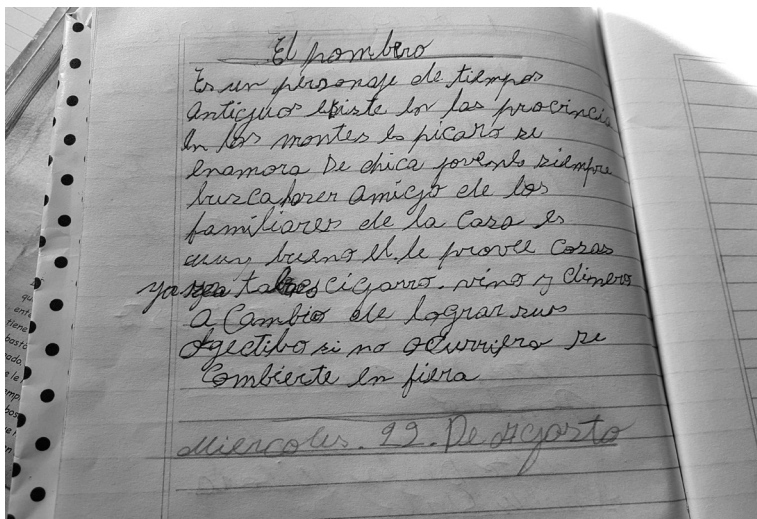 El pombero
Es un personaje de tiempos
antiguos existe en las provincia
en los montes es picaro se
enamora De chica jovenes siempre
busca hacer amigo de los
familiares de la Casa es
muy bueno el le provee cosas
ya sea tabacos cigarro. vino y dinero
a Cambio de lograr sus
ogectibo si no ocurriera se
combierte en fiera
Miercoles. 22. De Agosto